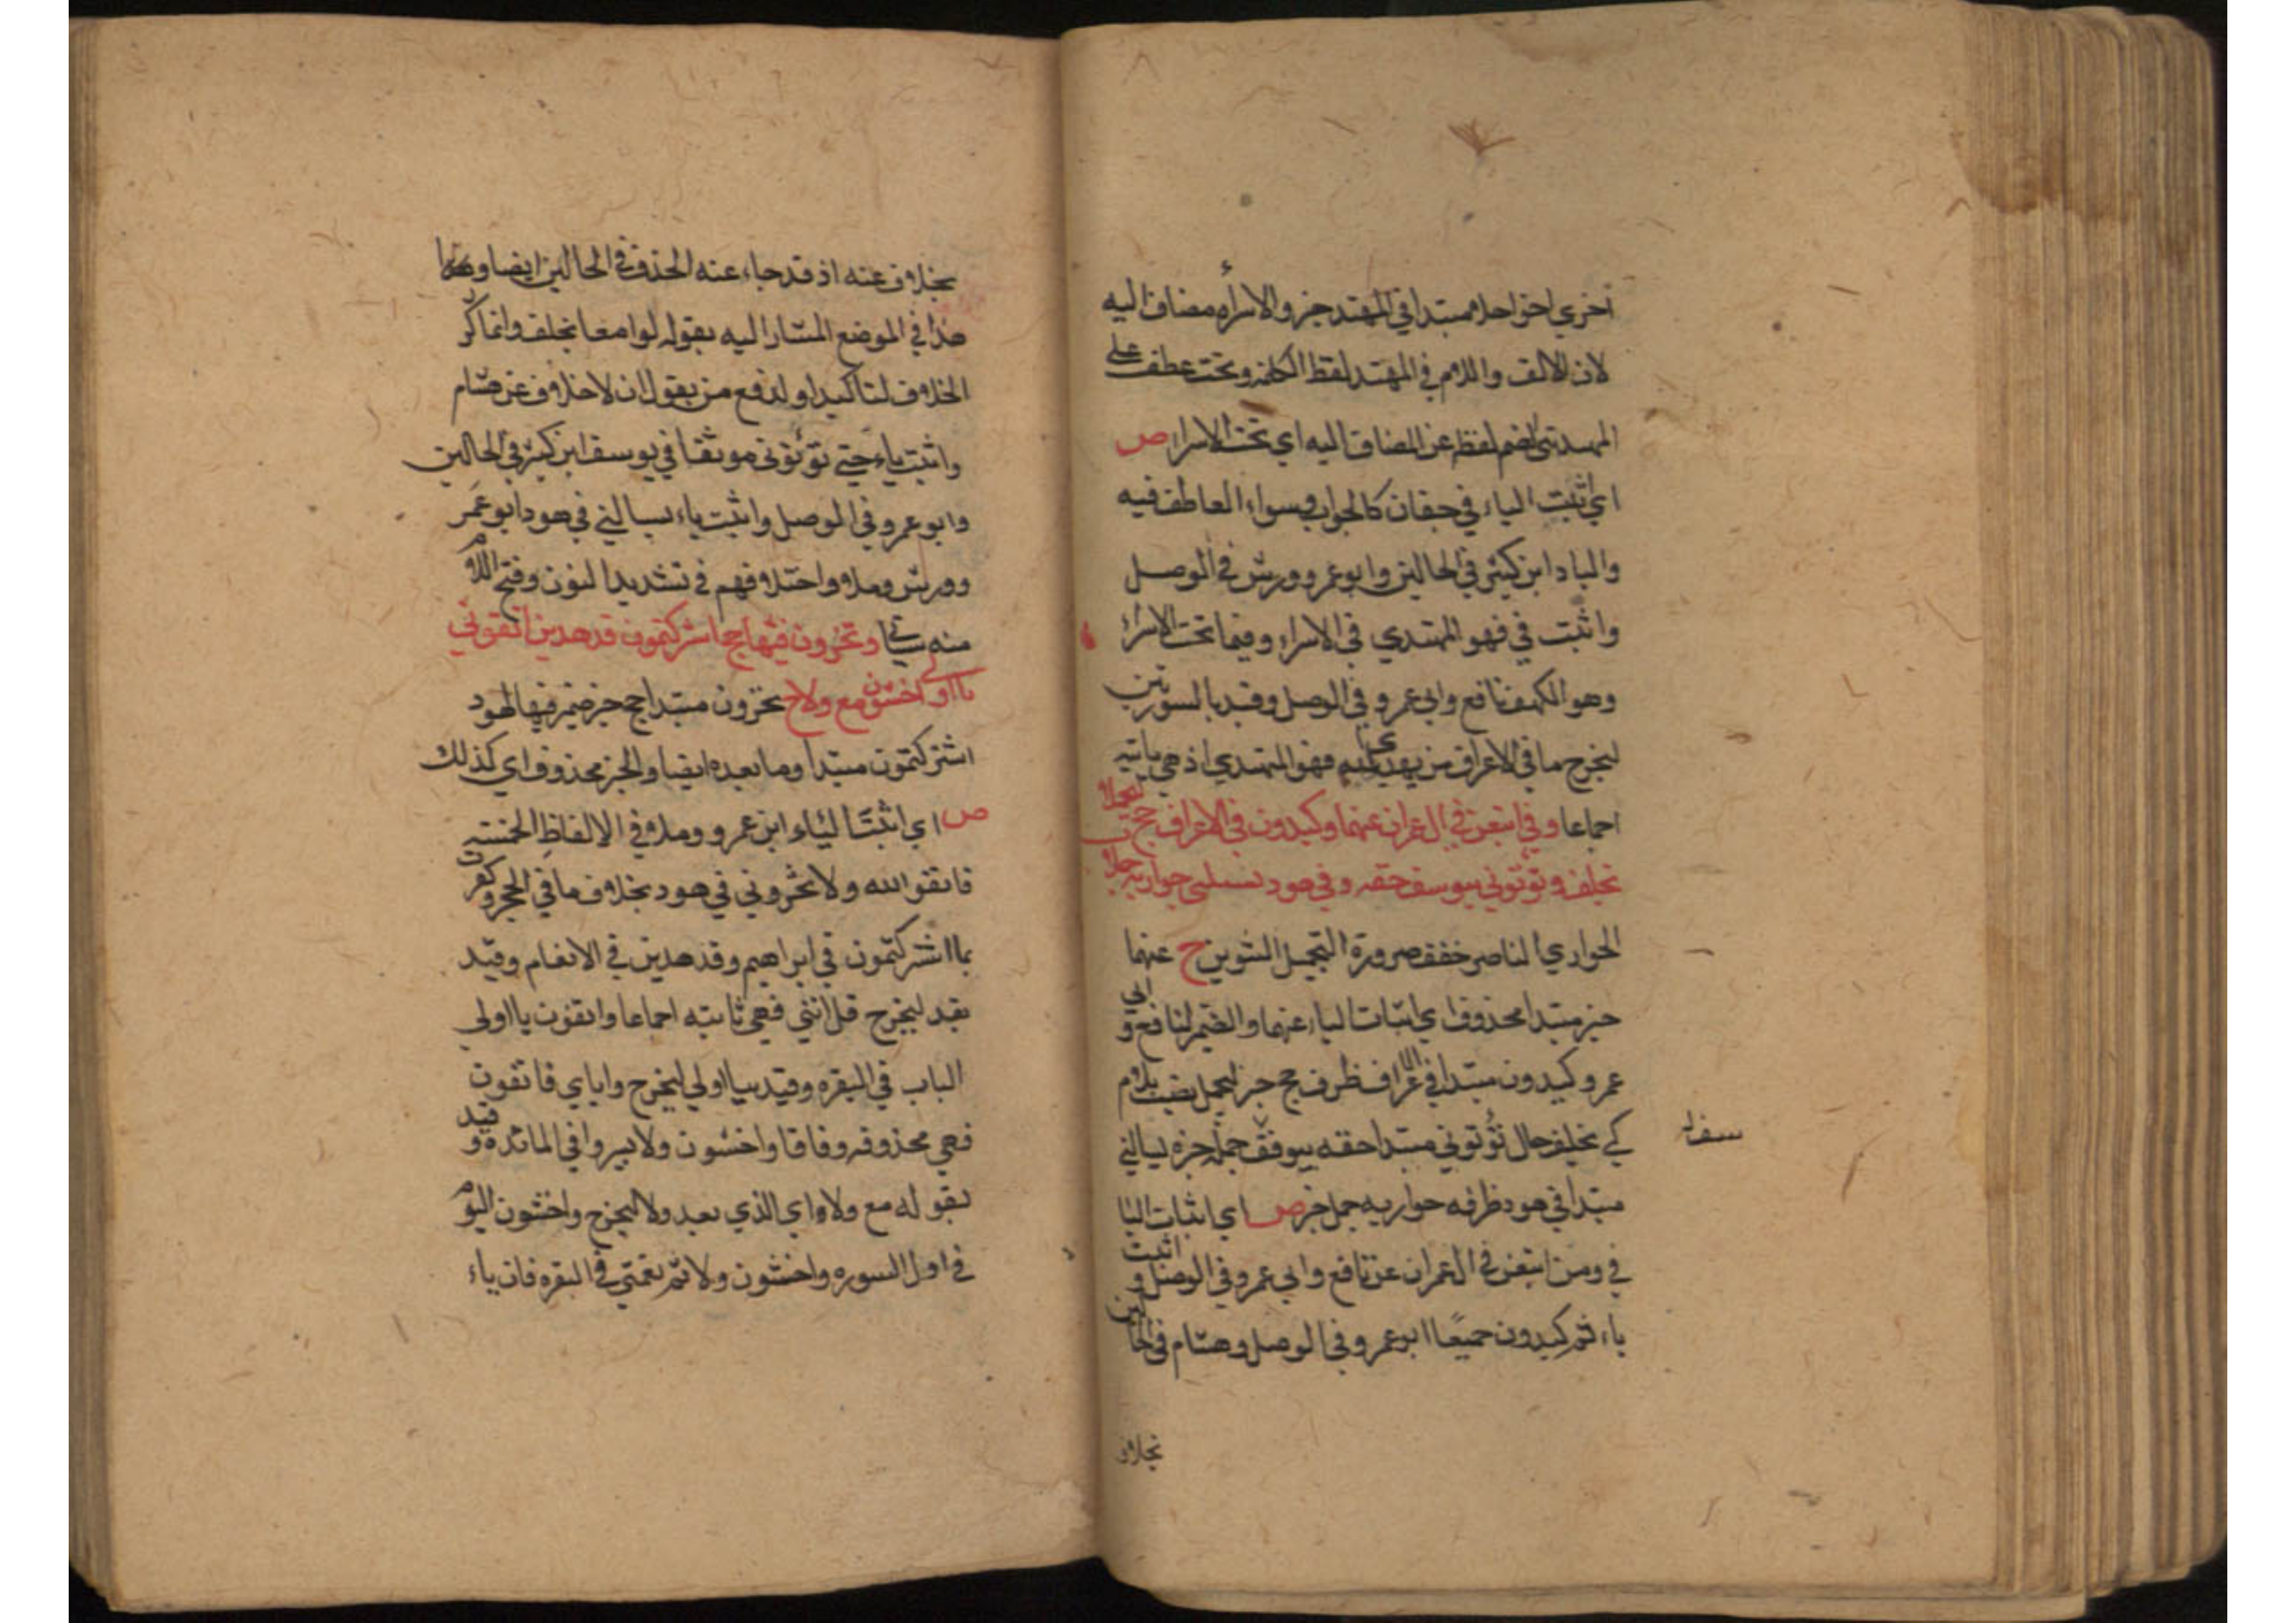 أخري اخو احلا مبتدا في المهتد خبر والاسراء مضاف اليه
لان الالف واللام في المهتد لفظ الكلمة وتحت عطف على
المهتدي لضم لفظه عن المضاف اليه اي تحت الاسرا ص
اي اثبت الياء في جفان كالجواب وسواء العاطف فيه
والباد ابن كثير في الحالين وابو عمرو وورش في الوصل
واثبت في فهو المهتدي في الاسراء وفيما تحت الاسراء
وهو الكهف نافع وابي عمرو في الوصل وقيد بالسورتين
ليخرج ما في الاعراف من يهدي فهو المهتدي اذ هي ثابتة
اجماعا وفي اتبعن في ال عمران عنهما وكيدون في الاعراف حج ليحملا
بخلف وتؤتوني بيوسف حقه وفي هود تسئلني حواريه جملا
الحواري الناصر خفف ضرورة التجميل التنوين ح عنهما
خبر مبتدا محذوف اي اثبات الياء عنهما والضمير لنافع وابي
عمرو وكيدون مبتدا في الاعراف ظرف حج خبر ليحمل نصب بلام
كي بخلف حال تؤتوني مبتدا حقه بيوسف جملة خبره تسالني
سف له
مبتدا في هود ظرفه حواريه جمل خبر ص اي اثبات اليا
في ومن اتبعن في ال عمران عن نافع وابي عمرو في الوصل واثبت
ياء ثم كيدون جميعًا ابو عمرو في الوصل وهشام في الحالين
بخلاف
بخلاف عنه اذ قد جاء عنه الحذف في الحالين ايضا
هذا في الموضع المشار اليه بقوله لوامعا بخلف وانما كرر
الخلاف لتاكيد او لدفع من يقول ان لا خلاف عن هشام
واثبت ياء حتى تؤتوني موثقا في يوسف ابن كثير في الحالين
وابو عمرو في الوصل واثبت ياء تسالني في هود ابو عمر
وورش وصلا واختلافهم في تشديد النون وفتح اللام
منه سياتي وتخزون فيها حج اشركتمون قد هدين اتقوني
يا اولي اخشون مع ولا ح تخزون مبتدا حج خبر ضمير فيها لهود
اشركتمون مبتدا وما بعده ايضا والخبر محذوف اي كذلك
ص اي اثبت الياء ابن عمرو وصلا في الالفاظ الخمسة
فاتقوا الله ولا تخزوني في هود بخلاف ما في الحجر وكفرت
بما اشركتمون في ابراهيم وقد هدين في الانعام وقيد
بقد ليخرج قل انني فهي ثابته اجماعا واتقون يا اولي
الباب في البقره وقيد بيا اولي ليخرج واياي فاتقون
فهي محذوفه وفاقا واخشون ولا تشتروا في المائدة وقيد
بقوله مع ولا اي الذي بعد ولا ليخرج واخشون اليوم
في اول السوره واخشون ولاتم نعمتي في البقره فان ياء